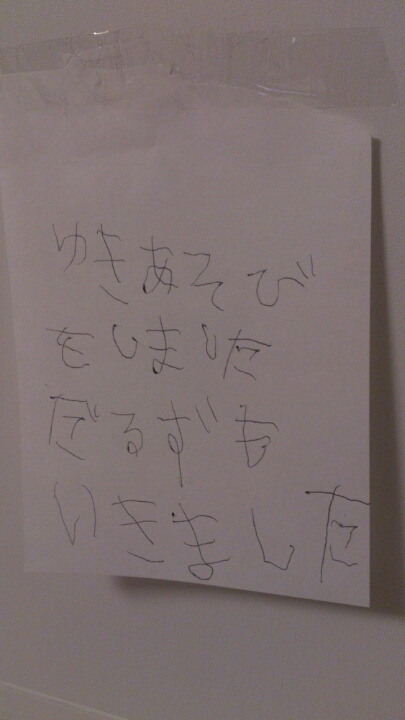 ゆきあそび
をしました
だるずも
いきました